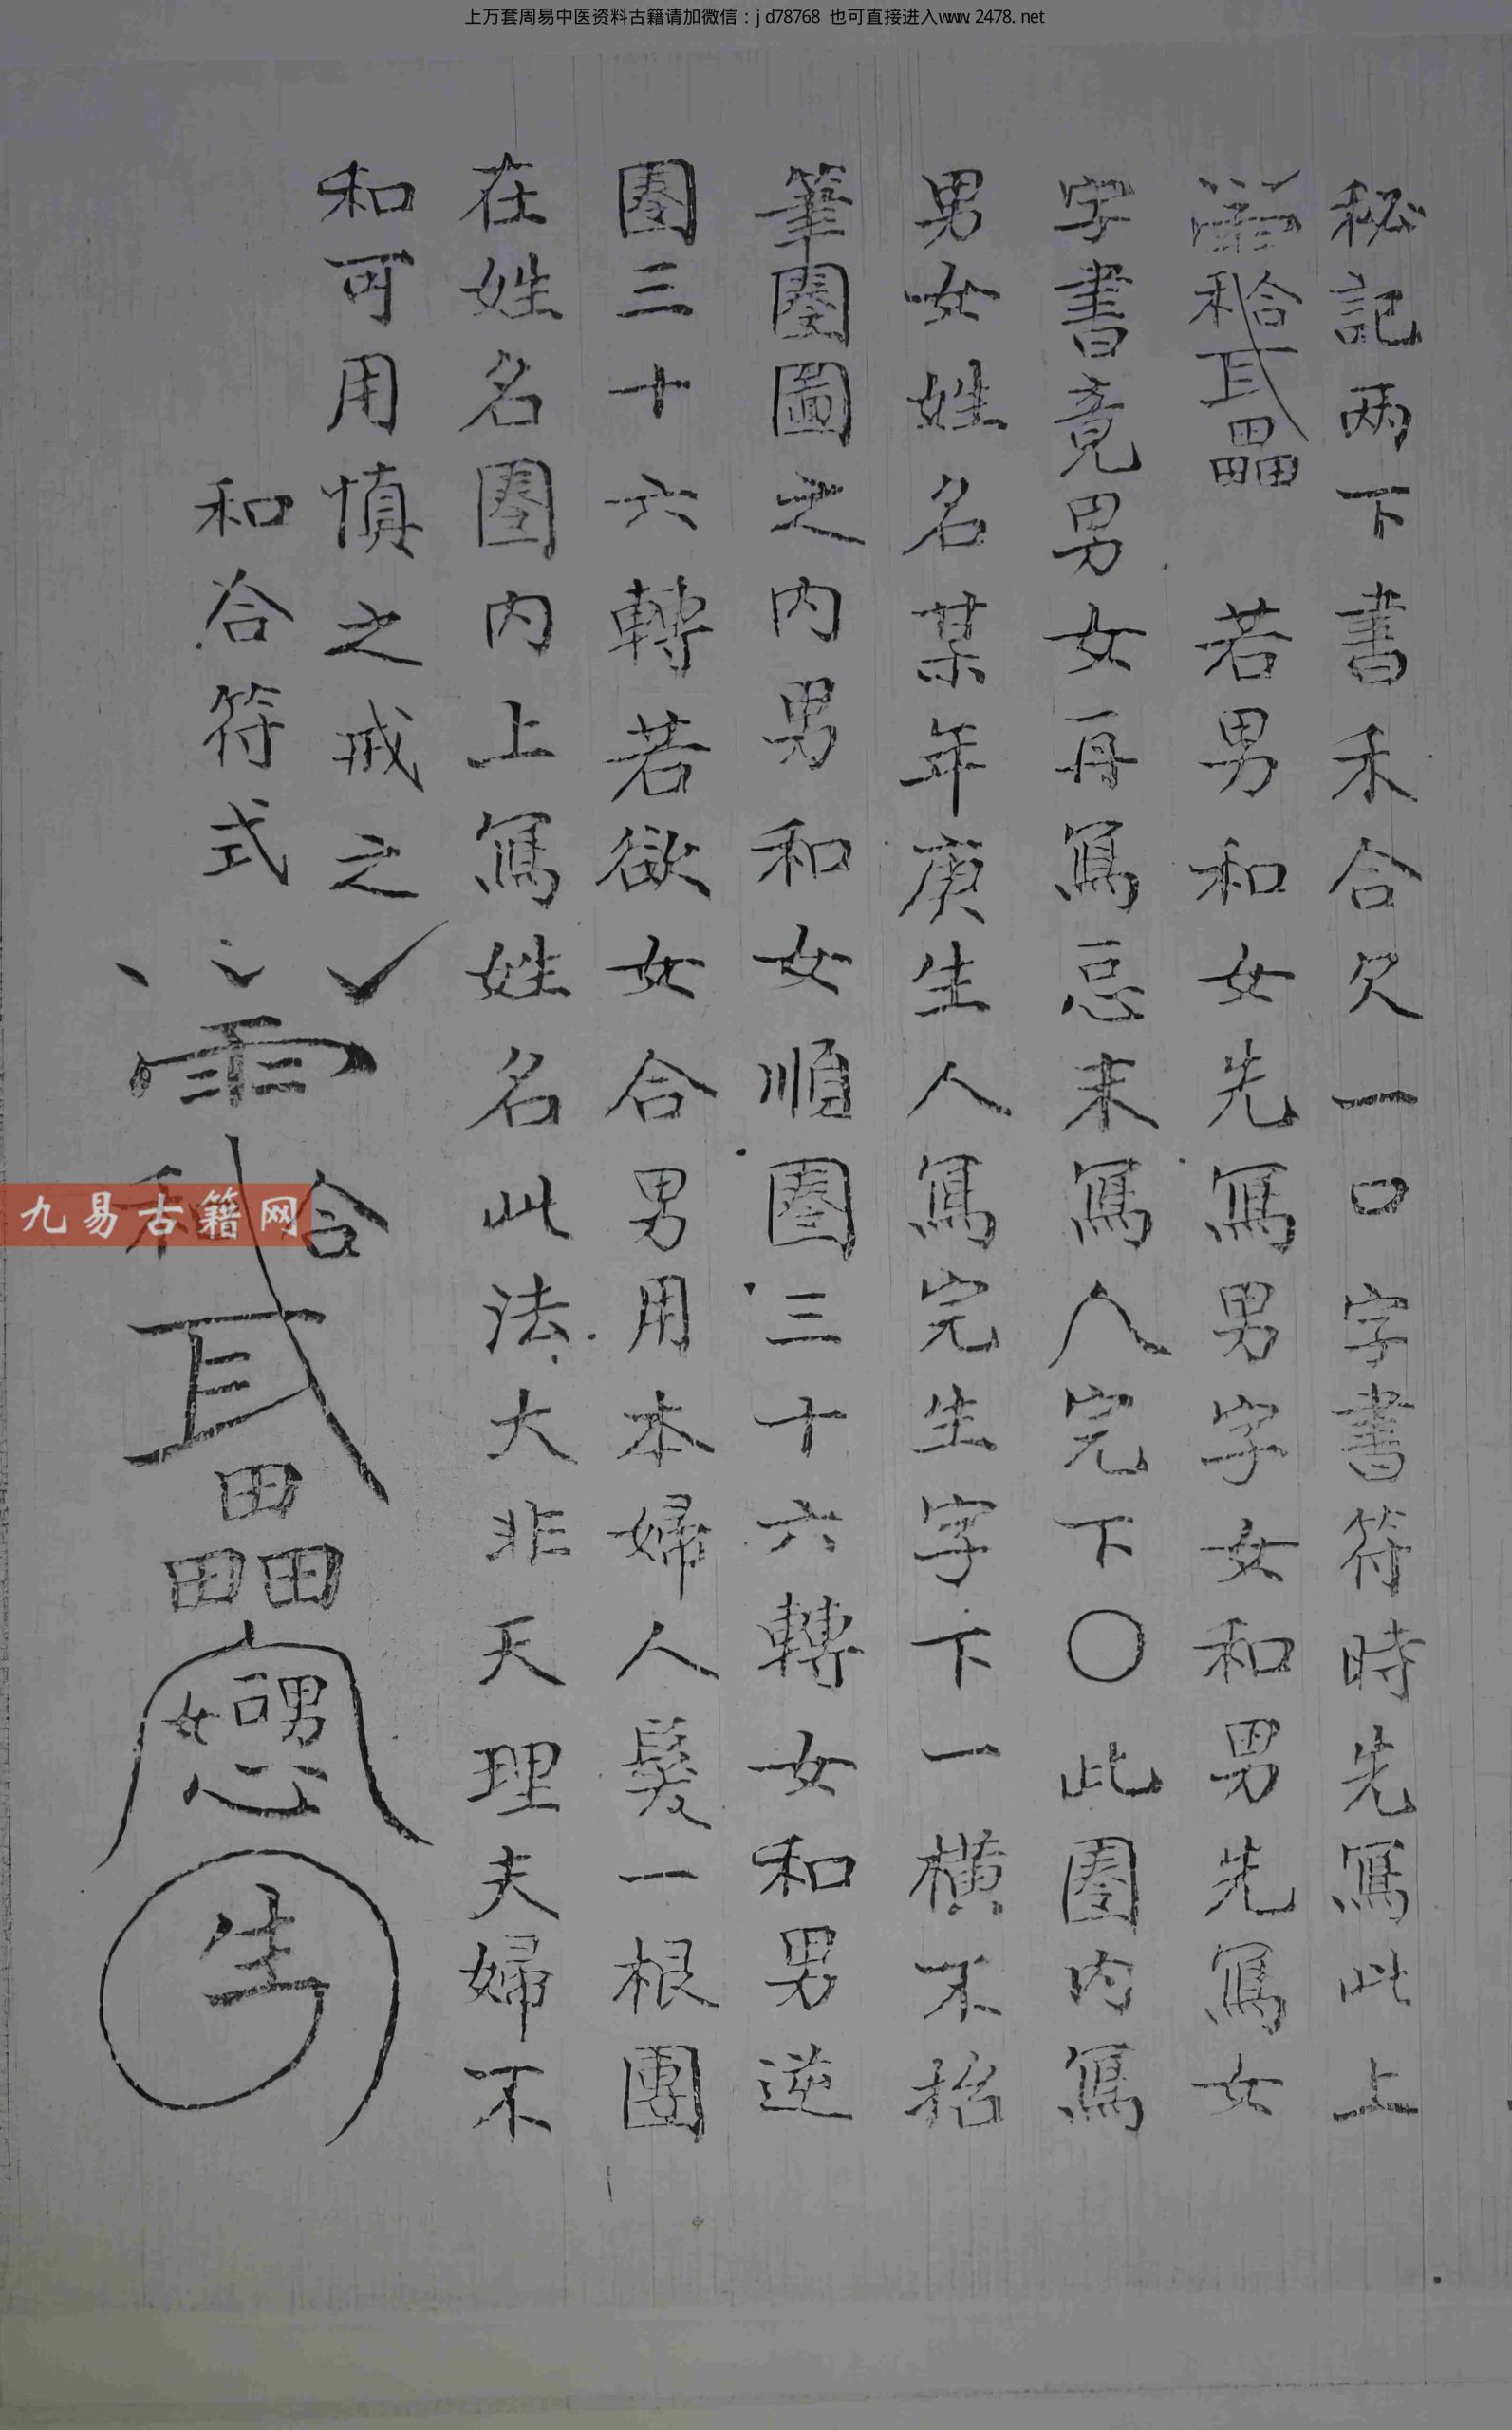 上万套周易中医资料古籍请加微信：jd78768 也可直接进入www.2478.net
秘記两下書禾合欠一口字書符時先寫此上
若男和女先寫男字女和男先寫女
字書竟男女再寫忌末寫人完下〇此圈内寫
男女姓名某年庚生人寫完生字下一横不抬
筆圈圖之内男和女順圈三十六轉女和男逆
圈三十六轉若欲女合男用本婦人髮一根團
在姓名圈内上寫姓名此法大非天理夫婦不
和可用慎之戒之
和合符式
合
畾
男
女
心
生
九易古籍网